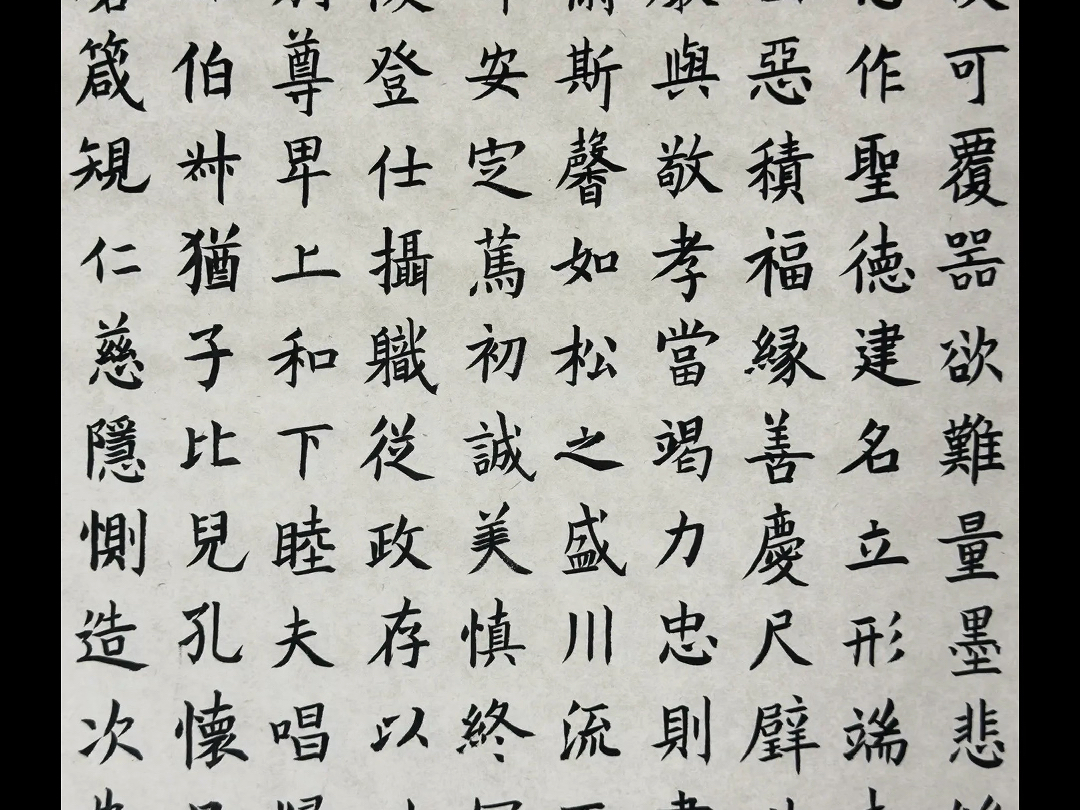 可覆器欲難量墨悲
作聖德建名立形端
惡積福緣善慶尺璧
與敬孝當竭力忠則
斯馨如松之盛川流
安定篤初誠美慎終
登仕攝職從政存以
尊卑上和下睦夫唱
伯叔猶子比兒孔懷
箴規仁慈隱惻造次